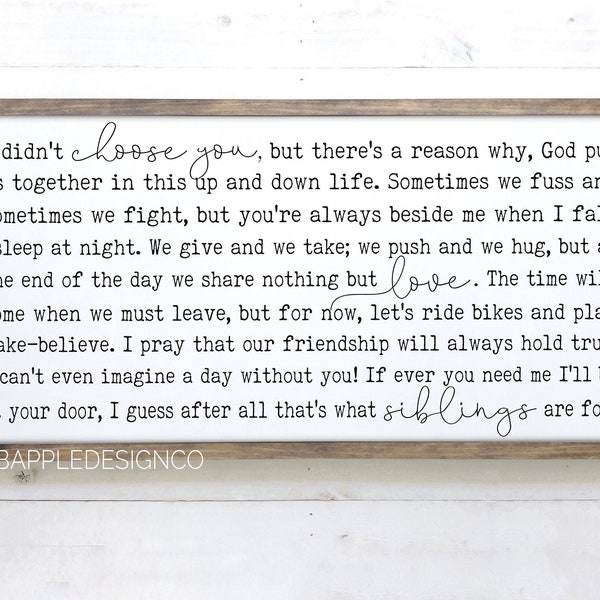 didn't choose you, but there's a reason why, God pu
s together in this up and down life. Sometimes we fuss an
ometimes we fight, but you're always beside me when I fal
sleep at night. We give and we take; we push and we hug, but a
he end of the day we share nothing but love. The time wil
ome when we must leave, but for now, let's ride bikes and pla
ake-believe. I pray that our friendship will always hold tru
can't even imagine a day without you! If ever you need me I'll b
your door, I guess after all that's what siblings are fo
BAPPLEDESIGNCO